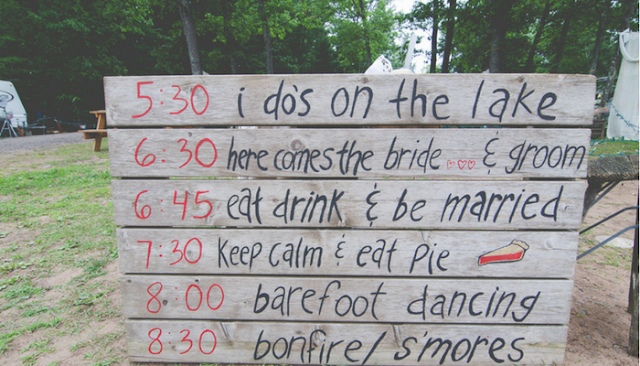 5:30 i do's on the lake
6:30 here comes the bride & groom
6:45 eat drink & be married
7:30 Keep calm & eat pie
8:00 barefoot dancing
8:30 bonfire/s'mores